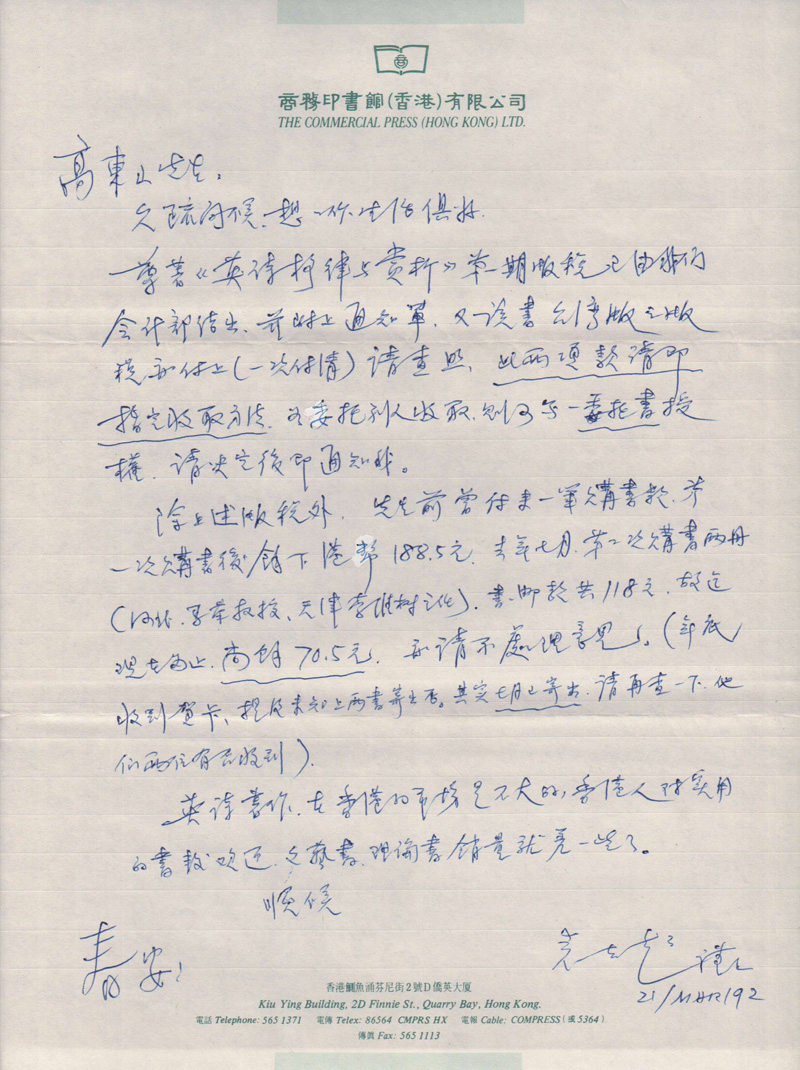 商務印書館(香港)有限公司
THE COMMERCIAL PRESS (HONG KONG) LTD.
高東山先生:
久疏问候,想一切生活俱好.
尊著《英诗格律与赏析》第一期版税已由我们
会计部结出.兹附上通知單.又该書台湾版之版
税亦付上(一次付清)请查照.此两项款请即
指定收取方法.若委托别人收取.则可写一委托書授
權.请决定後即通知我。
除上述版税外.先生前曾付来一筆購書款.第
一次購書後餘下港幣188.5元.去年七月.第二次購書两册
(河北.教授、天津李).書.邮款共118元.故迄
现在為止.尚餘70.5元.亦请示處理意見。(年底
收到贺卡、提及未知上两書寄出否。其实七月已寄出.请再查一下.他
们两位有否收到).
英诗著作.在香港的市場是不大的.香港人对实用
的書較欢迎.文藝書.理論書销量就差一些了。
順候
春安!
謹上
21/MAR/92
香港鰂魚涌芬尼街2號D僑英大厦
Kiu Ying Building, 2D Finnie St., Quarry Bay, Hong Kong.
電話 Telephone: 565 1371 電傳 Telex: 86564 CMPRS HX 電報 Cable: COMPRESS (或5364)
傳眞 Fax: 565 1113